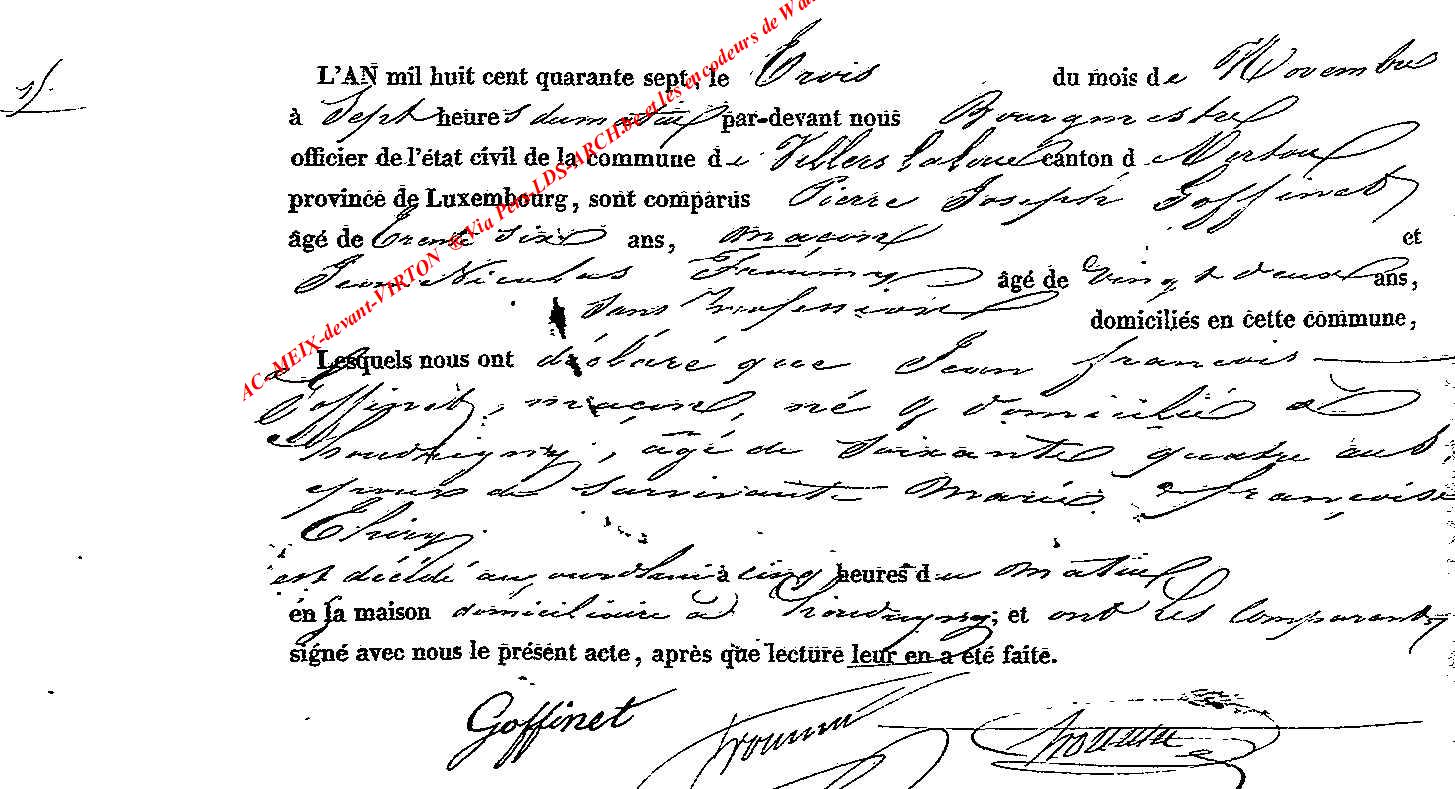 L'AN mil huit cent quarante sept, le Trois du mois de Novembre
à Sept heures du matin par-devant nous Bourgmestre
officier de l'état civil de la commune de Villers laloue canton d Virton
province de Luxembourg, sont comparus Pierre Joseph Goffinet
âgé de trente six ans, maçon et
Jean Nicolas âgé de vingt deux ans,
Sans profession domiciliés en cette commune,
Lesquels nous ont déclaré que Jean françois
Goffinet, maçon, né y domicilié à
Houdrigny, âgé de soixante quatre ans,
époux de survivante Marie françoise
Thiry
est décédé aujourdhui à cinq heures du matin
en sa maison domiciliaire à houdrigny; et ont les comparants
signé avec nous le présent acte, après que lecture leur en a été faite.
Goffinet
AC-MEIX-devant-VIRTON ® Via Pers-LDS-ARCH.be et les encodeurs de